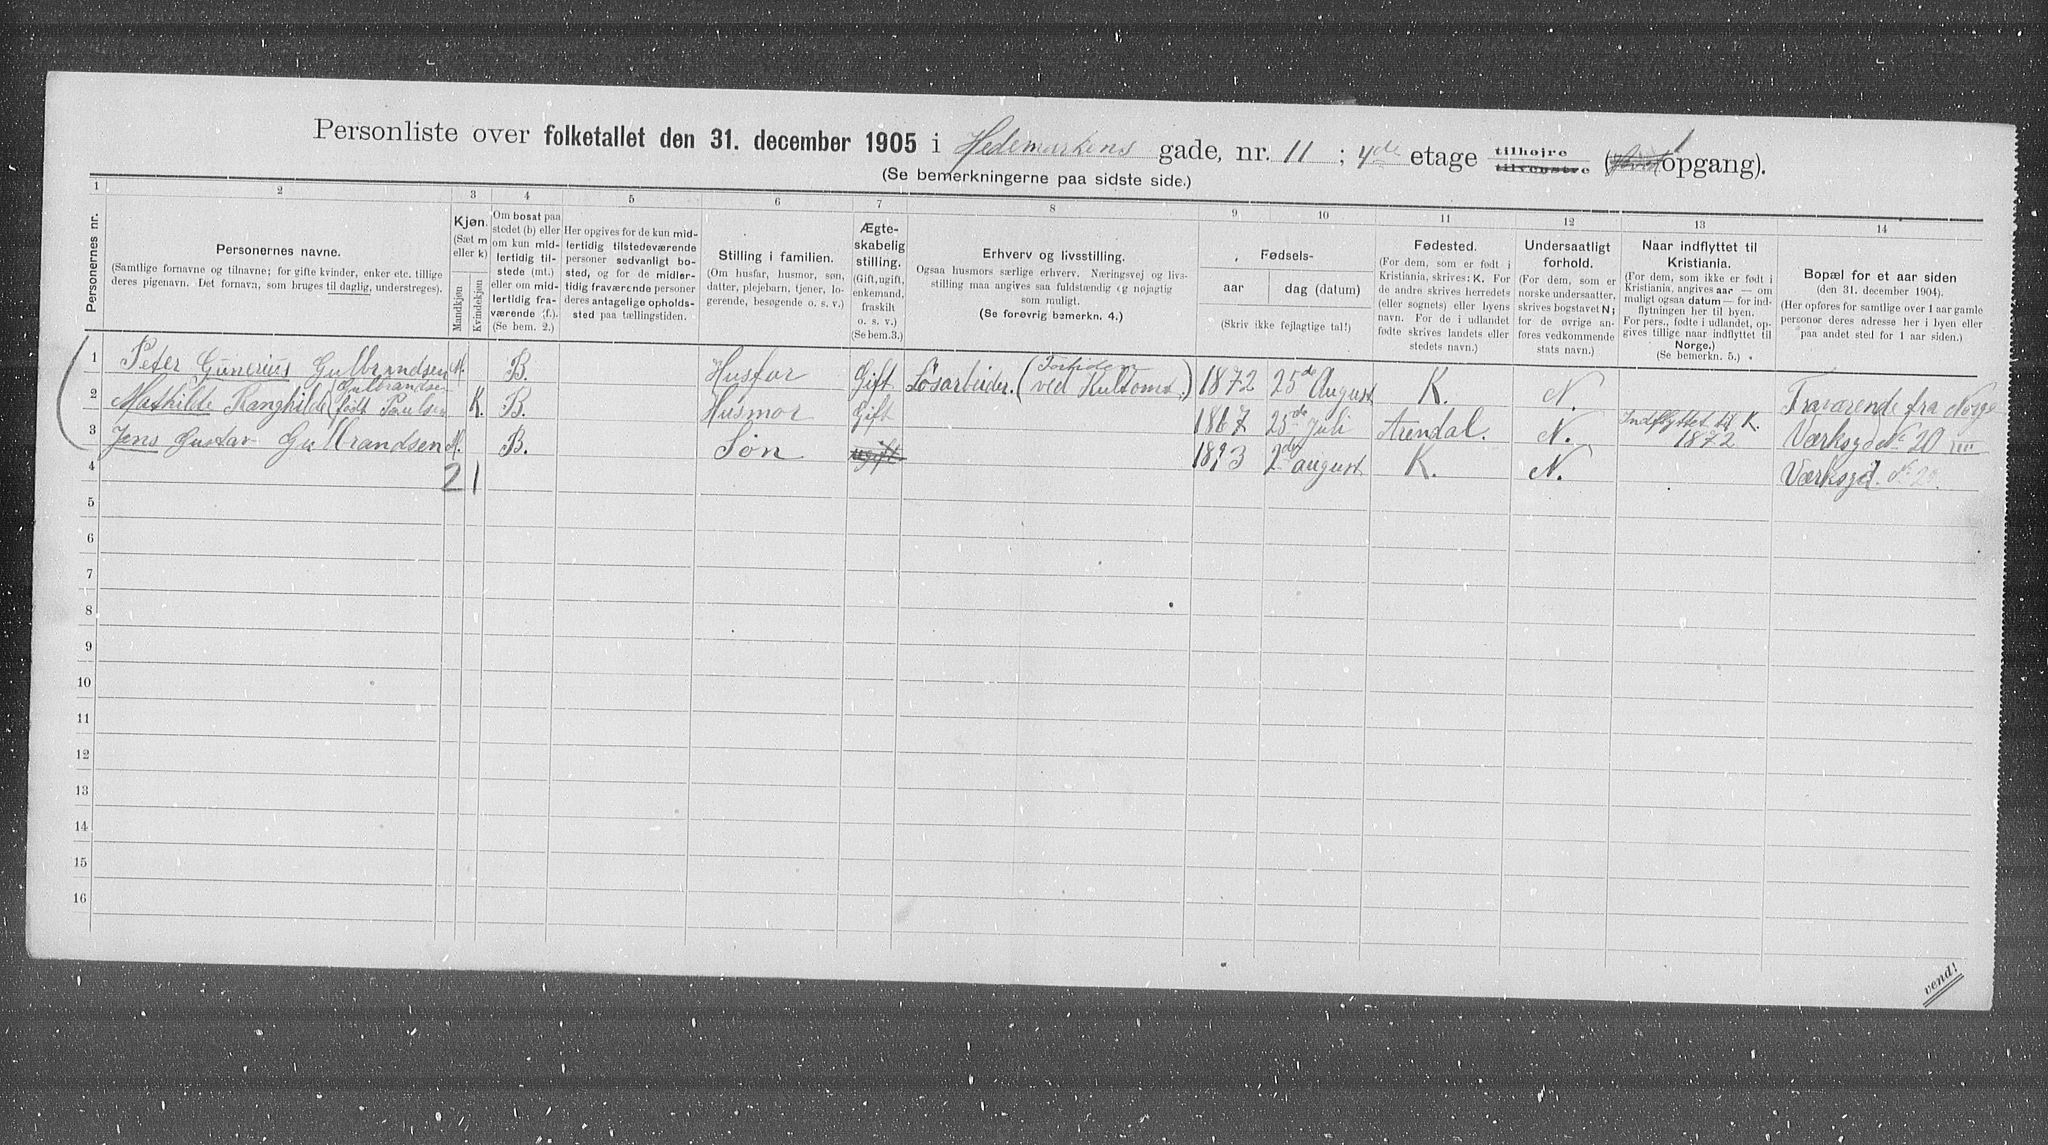 Personliste over folketallet den 31. december 1905 i Hedemarkens gade, nr. 11 ; 4de etage tilhøjre tilvenstre ( opgang).
(Se bemerkningerne paa sidste side.)
1 2 3 4 5 6 7 8 9 10 11 12 13 14
Personernes nr.
Personernes navne.
(Samtlige fornavne og tilnavne; for gifte kvinder, enker etc. tillige
deres pigenavn. Det fornavn, som bruges til daglig, understreges).
Kjøn.
(Sæt m
eller k)
Mandkjøn
Kvindekjøn
Om bosat paa
stedet (b) eller
om kun mid-
lertidig til-
stede (mt.)
eller om mid-
lertidig fra-
værende (f.).
(Se bem. 2.)
Her opgives for de kun mid-
lertidig tilstedeværende
personer sedvanlig bo-
sted, og for de midler-
tidig fraværende personer
deres antagelige opholds-
sted paa tællingstiden.
Stilling i familien.
(Om husfar, husmor, søn,
datter, plejebarn, tjener, lo-
gerende, besøgende o. s. v.)
Ægte-
skabelig
stilling.
(Gift, ugift,
enkemand,
fraskilt
o. s. v.)
(Se bem.3.)
Erhverv og livsstilling.
Ogsaa husmors særlige erhverv. Næringsvej og livs-
stilling maa angives saa fuldstændig og nøjagtig
som muligt.
(Se forøvrig bemerkn. 4.)
Fødsels-
aar dag (datum)
(Skriv ikke fejlagtige tal!)
Fødested.
(For dem, som er født i
Kristiania, skrives: K. For
de andre skrives herredets
(eller sognets) eller byens
navn. For de i udlandet
fødte skrives landets eller
stedets navn.)
Undersaatligt
forhold.
(For dem, som er
norske undersaatter,
skrives bogstavet N;
for de øvrige an-
føres vedkommende
stats navn.)
Naar indflyttet til
Kristiania.
(For dem, som ikke er født i
Kristiania, angives aar — om
muligt ogsaa datum — for ind-
flytningen her til byen.
For pers., fødte i udlandet, op-
gives tillige naar indflyttet til
Norge.)
(Se bemerkn. 5.)
Bopæl for et aar siden
(den 31. december 1904).
(Her opføres for samtlige over 1 aar gamle
personer deres adresse her i byen eller
paa andet sted for 1 aar siden.)
1 Peter Gunerius Gulbrandsen M. B. Husfar Gift Løsarbeider. (Fortiden ved Kultomt.) 1872 25de August K. N. Fraværende fra Norge
2 Mathilde Ranghilde Gulbrandsen født Paulsen K. B. Husmor Gift 1867 25de Juli Arendal. N. Indflyttet til K. 1872 Værksgd No 20
3 Jens Gustav Gulbrandsen M. B. Søn ugift 1893 2de august K. N. Værksgd. No 20.
4 2 1
5
6
7
8
9
10
11
12
13
14
15
16
vend!